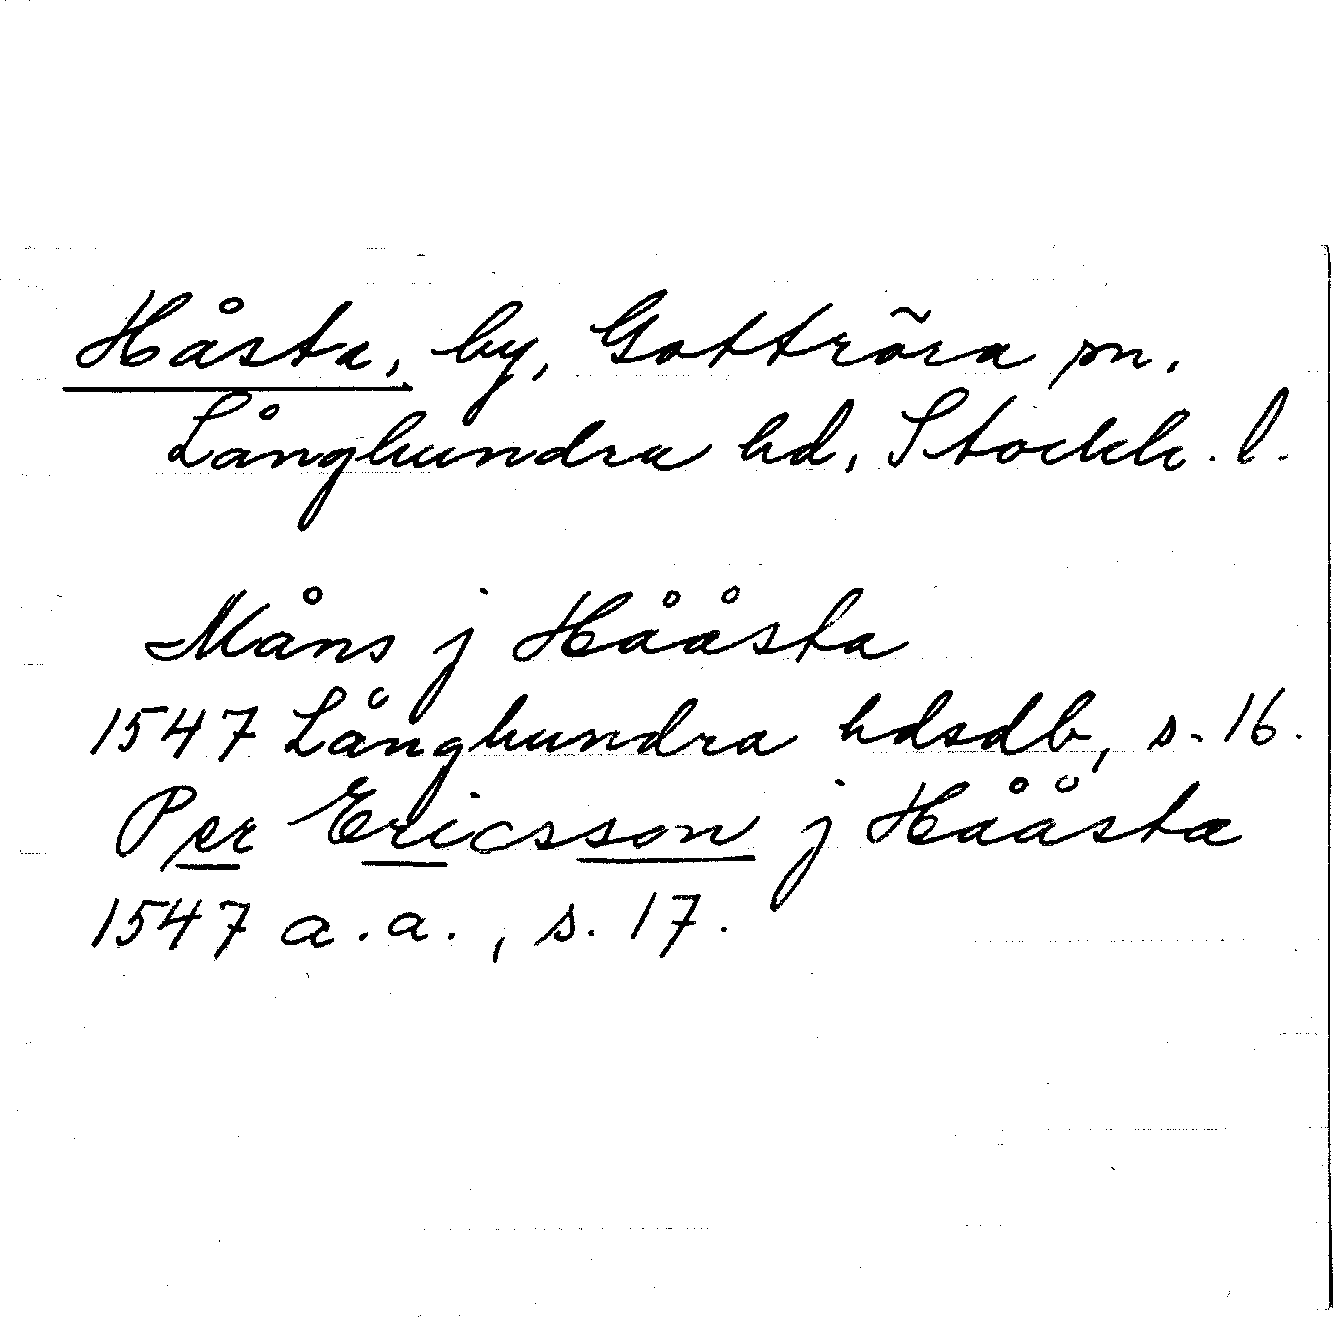 Håsta, by, Gottröra sn.
Långhundra hd, Stockh. l.
Måns j Hååsta
1547 Långhundra hdsdb, s. 16.
Per Ericsson j Hååsta
1547 a.a., s. 17.